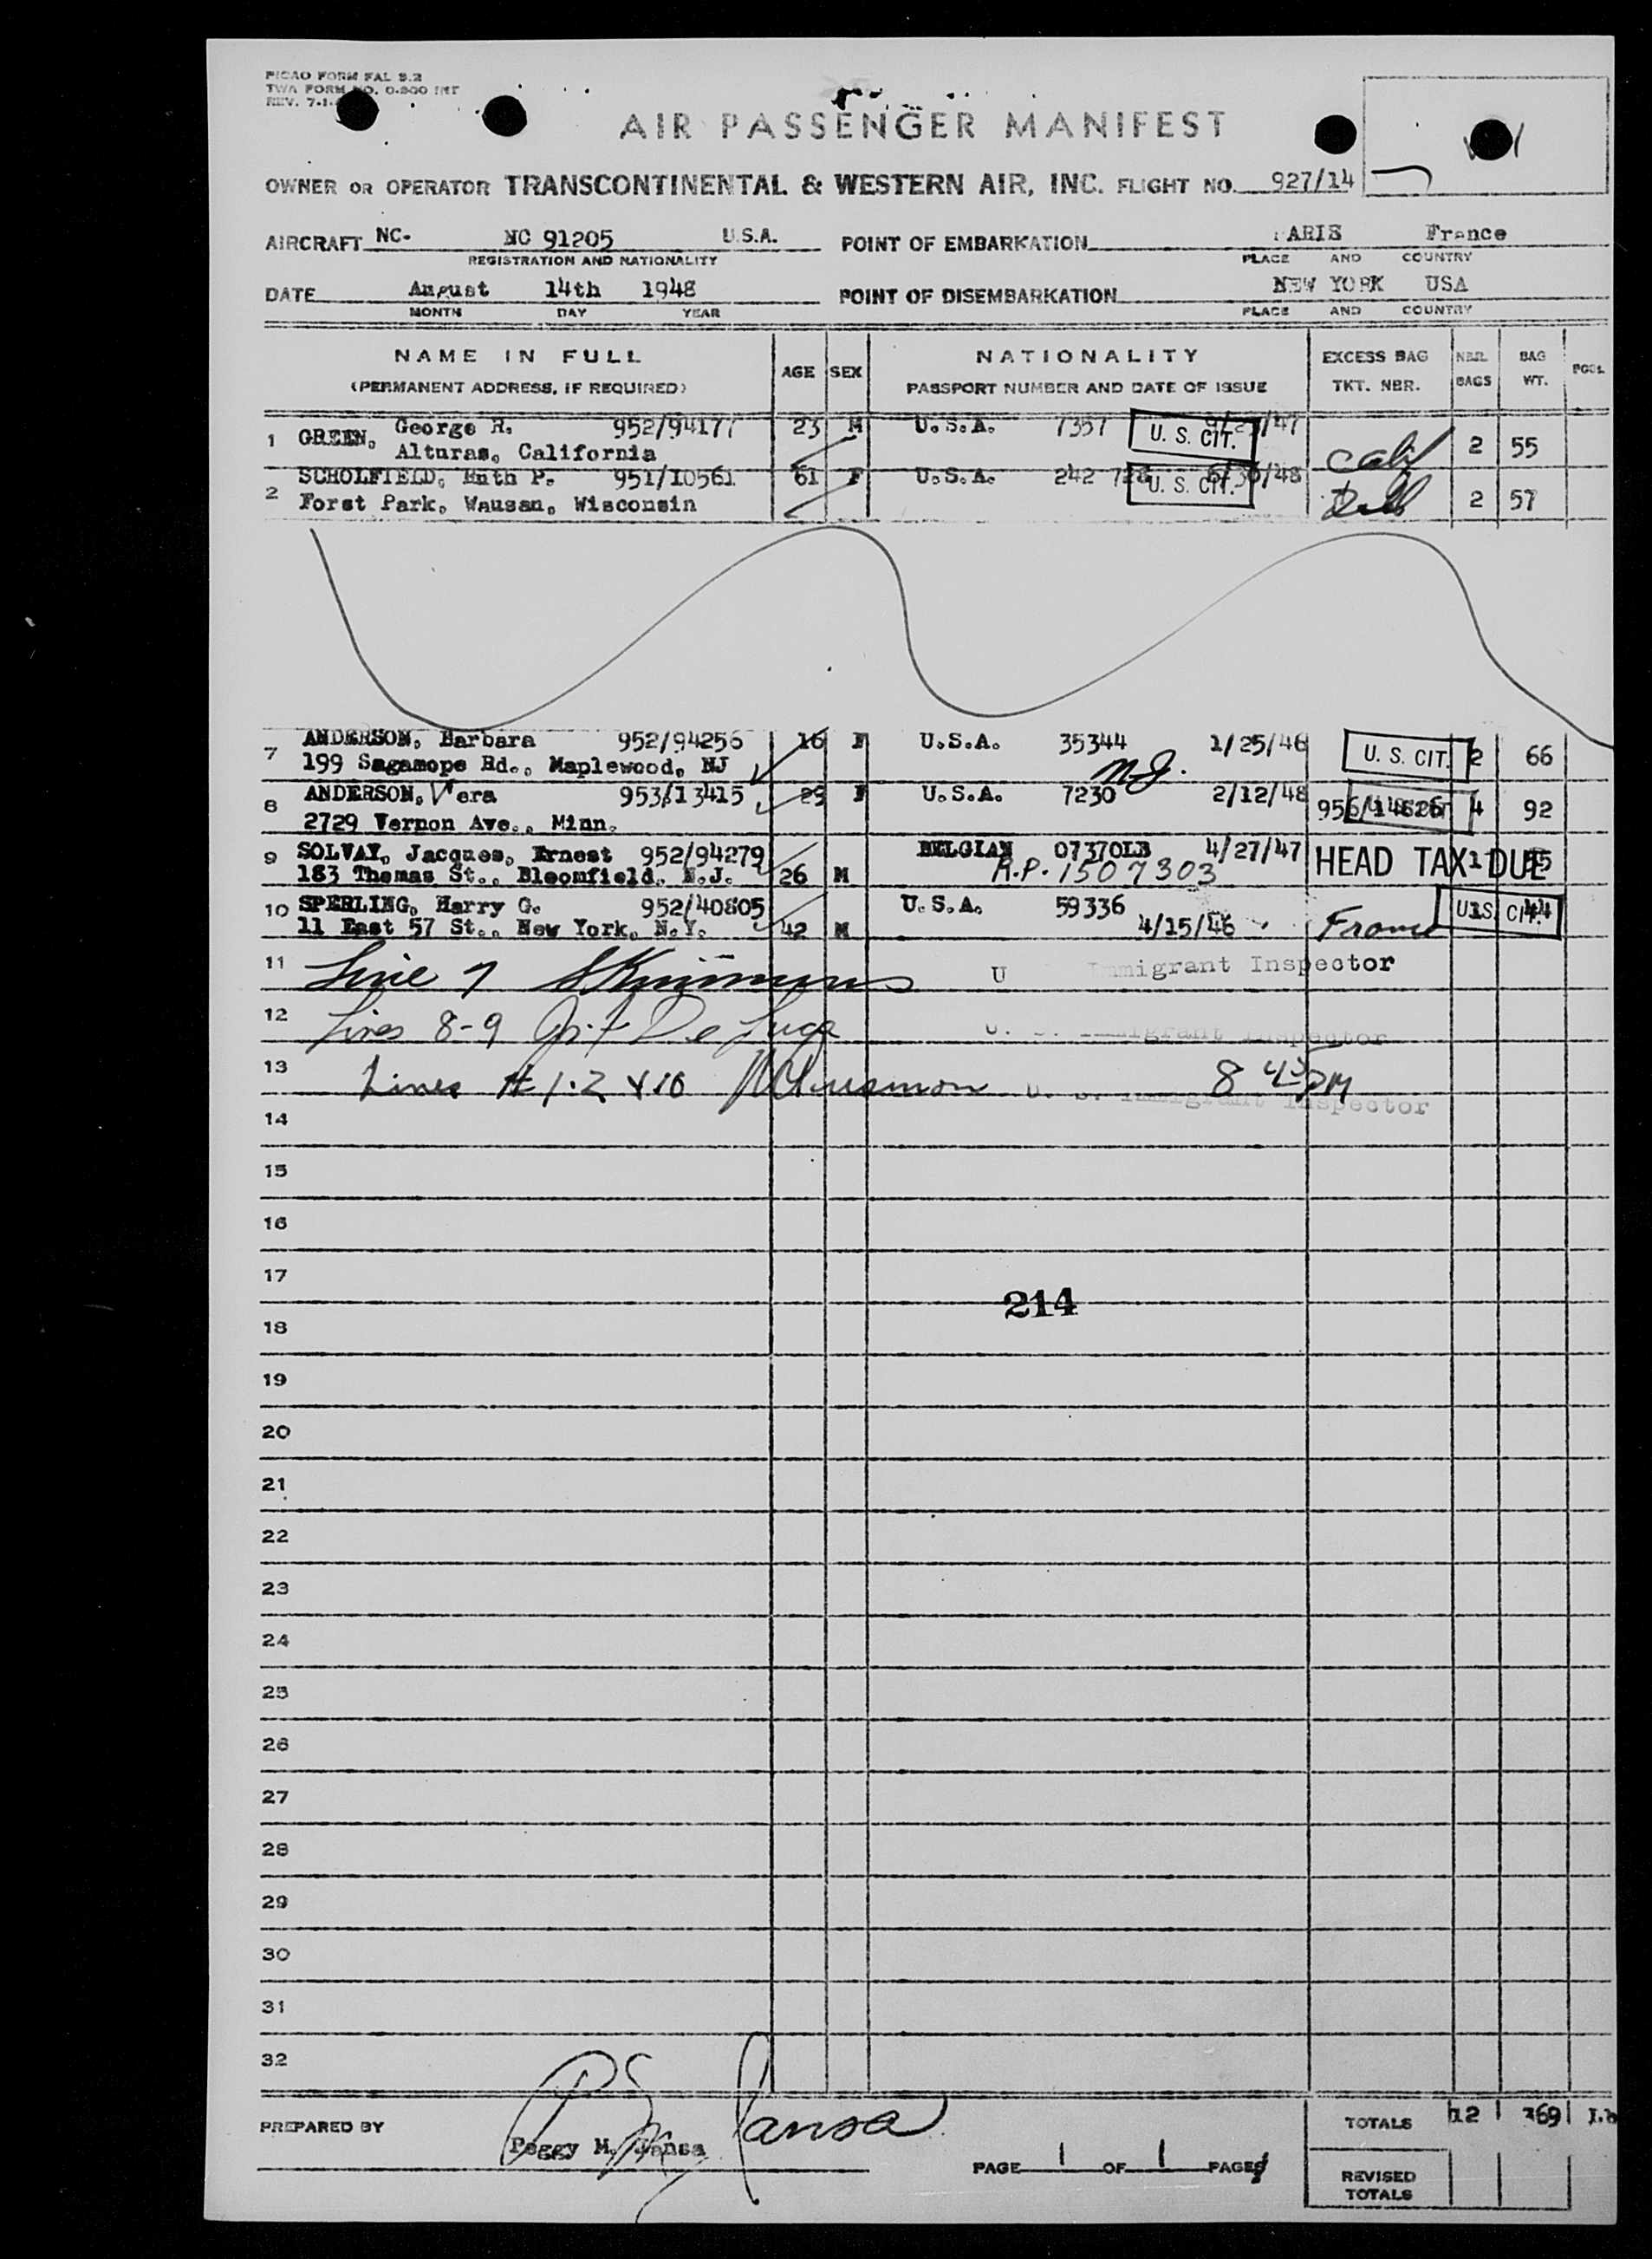 PICAO FORM FAL 3.2
TWA FORM NO. 0-800 INT
REV. 7-1-
AIR PASSENGER MANIFEST
OWNER OR OPERATOR TRANSCONTINENTAL & WESTERN AIR, INC. FLIGHT NO. 927/14
AIRCRAFT NC- NC 91205 U.S.A. POINT OF EMBARKATION ARIS France
REGISTRATION AND NATIONALITY PLACE AND COUNTRY
DATE August 14th 1948 POINT OF DISEMBARKATION NEW YORK USA
MONTH DAY YEAR PLACE AND COUNTRY
NAME IN FULL AGE SEX NATIONALITY EXCESS BAG NBR. BAG
(PERMANENT ADDRESS, IF REQUIRED) PASSPORT NUMBER AND DATE OF ISSUE TKT. NBR. BAGS WT.
1 GREEN, George R. 952/94177 23 M U.S.A. 7357 /47 U. S. CIT. Calif 2 55
Alturas, California
2 SCHOLFIELD, Ruth P. 951/10561 61 F U.S.A. 242 728 6/30/48 U. S. CIT. 2 57
Forst Park, Wausan, Wisconsin
7 ANDERSON, Barbara 952/94256 16 F U.S.A. 35344 1/25/46 U. S. CIT. 2 66
199 Sagamope Rd., Maplewood, NJ N.J.
8 ANDERSON, Vera 953/13415 U.S.A. 7230 2/12/48 4 92
2729 Vernon Ave., Minn.
9 SOLVAY, Jacques, Ernest 952/94279 BELGIAN 07370LB 4/27/47 HEAD TAX DUE
183 Thomas St., Bloomfield, N.J. 26 M 1507303
10 SPERLING, Harry G. 952/40805 U.S.A. 59336 U.S. CIT. 44
11 East 57 St., New York, N.Y. 42 M 4/15/46 France
11 Line 7 U Immigrant Inspector
12 Lines 8-9 De Luca U. S. Immigrant Inspector
13 Lines # 1.2 & 10 8 45 PM
U. S. Immigrant Inspector
14
15
16
17
214
18
19
20
21
22
23
24
25
26
27
28
29
30
31
32
PREPARED BY Peggy M. Jansa TOTALS 12 369 Lb
PAGE 1 OF 1 PAGES
REVISED
TOTALS